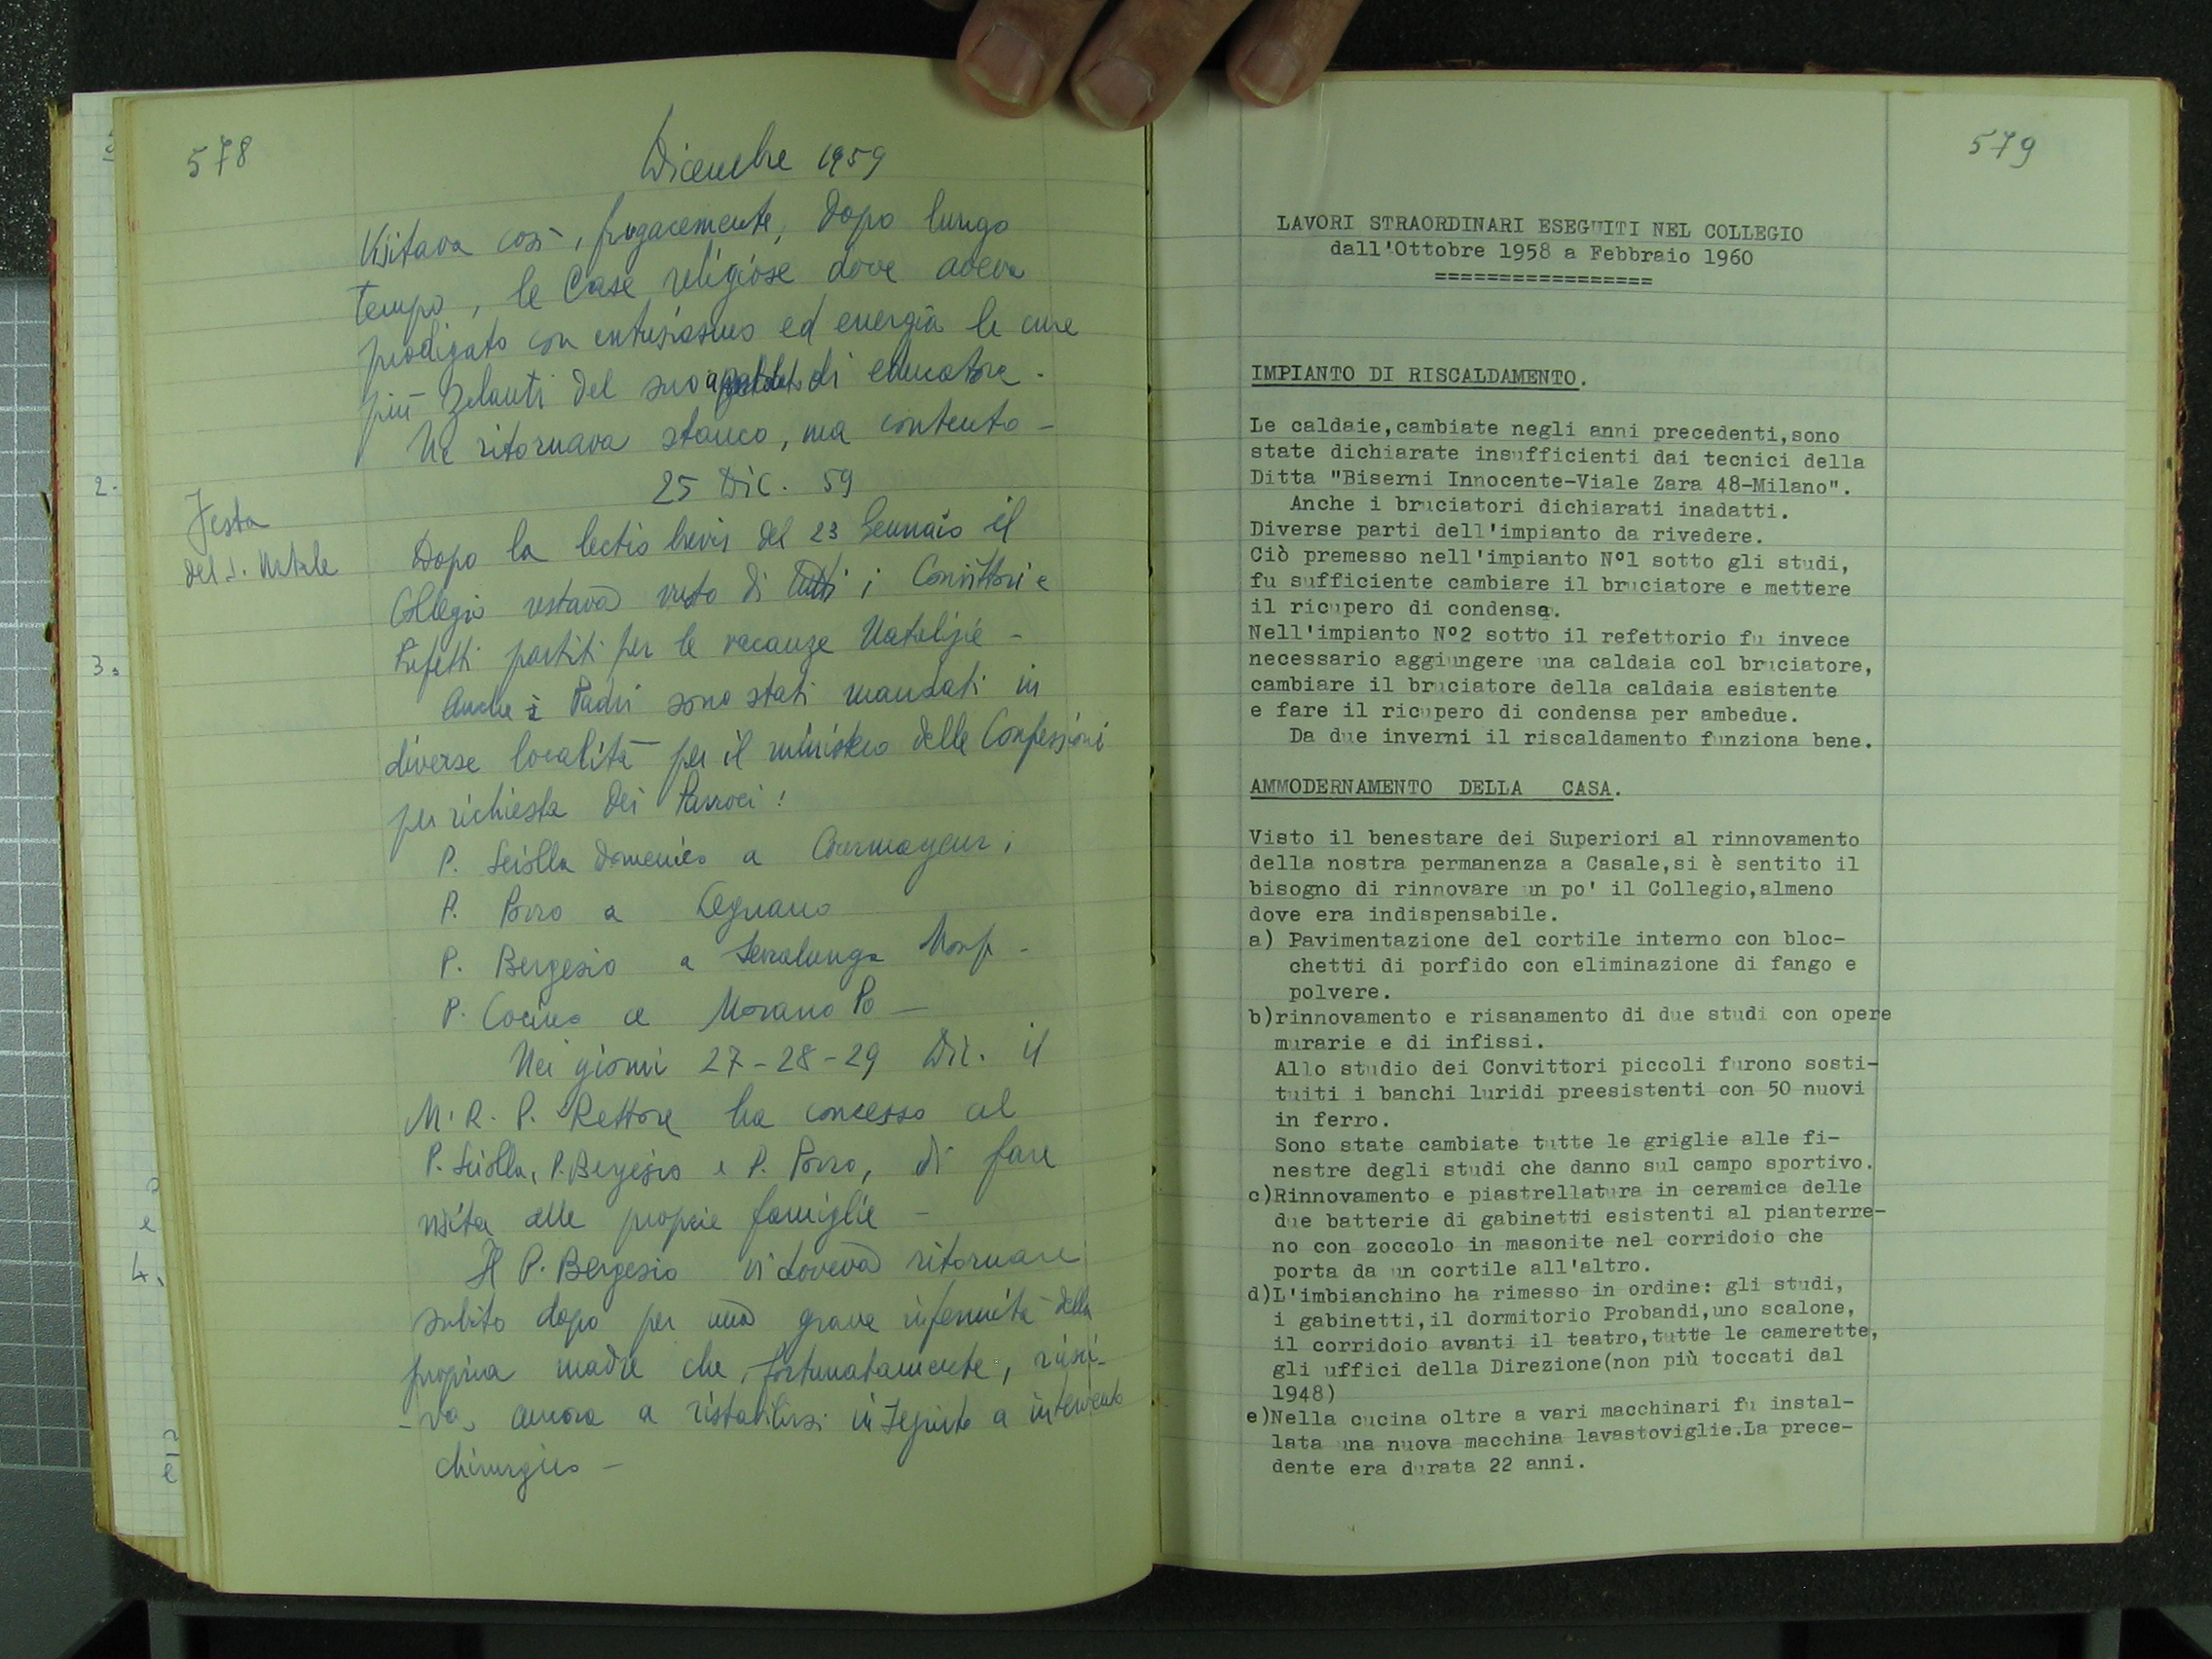 578
Dicembre 1959
Visitava così, fugacemente, dopo lungo
tempo, le Case religiose dove aveva
prodigato con entusiasmo ed energia le cure
più zelanti del suo apostolato di educatore.
Ne ritornava stanco, ma contento -
25 Dic. 59
Festa
del S. Natale
Dopo la lectio brevis del 23 Gennaio il
Collegio restava vuoto di tutti i Convittori e
Prefetti partiti per le vacanze Natalizie -
Anche i Padri sono stati mandati in
diverse località per il ministero delle Confessioni
per richiesta dei Parroci:
P. Sciolla Domenico a Courmayeur;
P. Porro a Legnano
P. Bergesio a Serralunga Monf -
P. Cocino a Morano Po -
Nei giorni 27-28-29 Dic. il
M. R. P. Rettore ha concesso al
P. Sciolla, P. Bergesio e P. Porro, di fare
visita alle proprie famiglie -
Il P. Bergesio vi doveva ritornare
subito dopo per una grave infermità della
propria madre che, fortunatamente, riusci-
-va, ancora a ristabilirsi in seguito a intervento
chirurgico -
2.
3.
4.
579
LAVORI STRAORDINARI ESEGUITI NEL COLLEGIO
dall'Ottobre 1958 a Febbraio 1960
=================
IMPIANTO DI RISCALDAMENTO.
Le caldaie,cambiate negli anni precedenti,sono
state dichiarate insufficienti dai tecnici della
Ditta "Biserni Innocente-Viale Zara 48-Milano".
Anche i bruciatori dichiarati inadatti.
Diverse parti dell'impianto da rivedere.
Ciò premesso nell'impianto N°1 sotto gli studi,
fu sufficiente cambiare il bruciatore e mettere
il ricupero di condensa.
Nell'impianto N°2 sotto il refettorio fu invece
necessario aggiungere una caldaia col bruciatore,
cambiare il bruciatore della caldaia esistente
e fare il ricupero di condensa per ambedue.
Da due inverni il riscaldamento funziona bene.
AMMODERNAMENTO DELLA CASA.
Visto il benestare dei Superiori al rinnovamento
della nostra permanenza a Casale,si è sentito il
bisogno di rinnovare un po' il Collegio,almeno
dove era indispensabile.
a) Pavimentazione del cortile interno con bloc-
chetti di porfido con eliminazione di fango e
polvere.
b)rinnovamento e risanamento di due studi con opere
murarie e di infissi.
Allo studio dei Convittori piccoli furono sosti-
tuiti i banchi luridi preesistenti con 50 nuovi
in ferro.
Sono state cambiate tutte le griglie alle fi-
nestre degli studi che danno sul campo sportivo.
c)Rinnovamento e piastrellatura in ceramica delle
due batterie di gabinetti esistenti al pianterre-
no con zoccolo in masonite nel corridoio che
porta da un cortile all'altro.
d)L'imbianchino ha rimesso in ordine: gli studi,
i gabinetti,il dormitorio Probandi,uno scalone,
il corridoio avanti il teatro,tutte le camerette,
gli uffici della Direzione(non più toccati dal
1948)
e)Nella cucina oltre a vari macchinari fu instal-
lata una nuova macchina lavastoviglie.La prece-
dente era durata 22 anni.